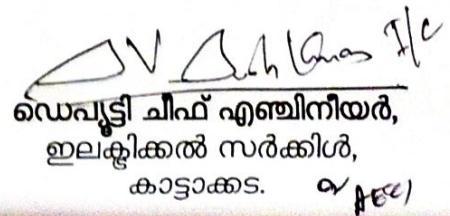 I/C
ഡെപ്യൂട്ടി ചീഫ് എഞ്ചിനീയർ,
ഇലക്ട്രിക്കൽ സർക്കിൾ,
കാട്ടാക്കട.